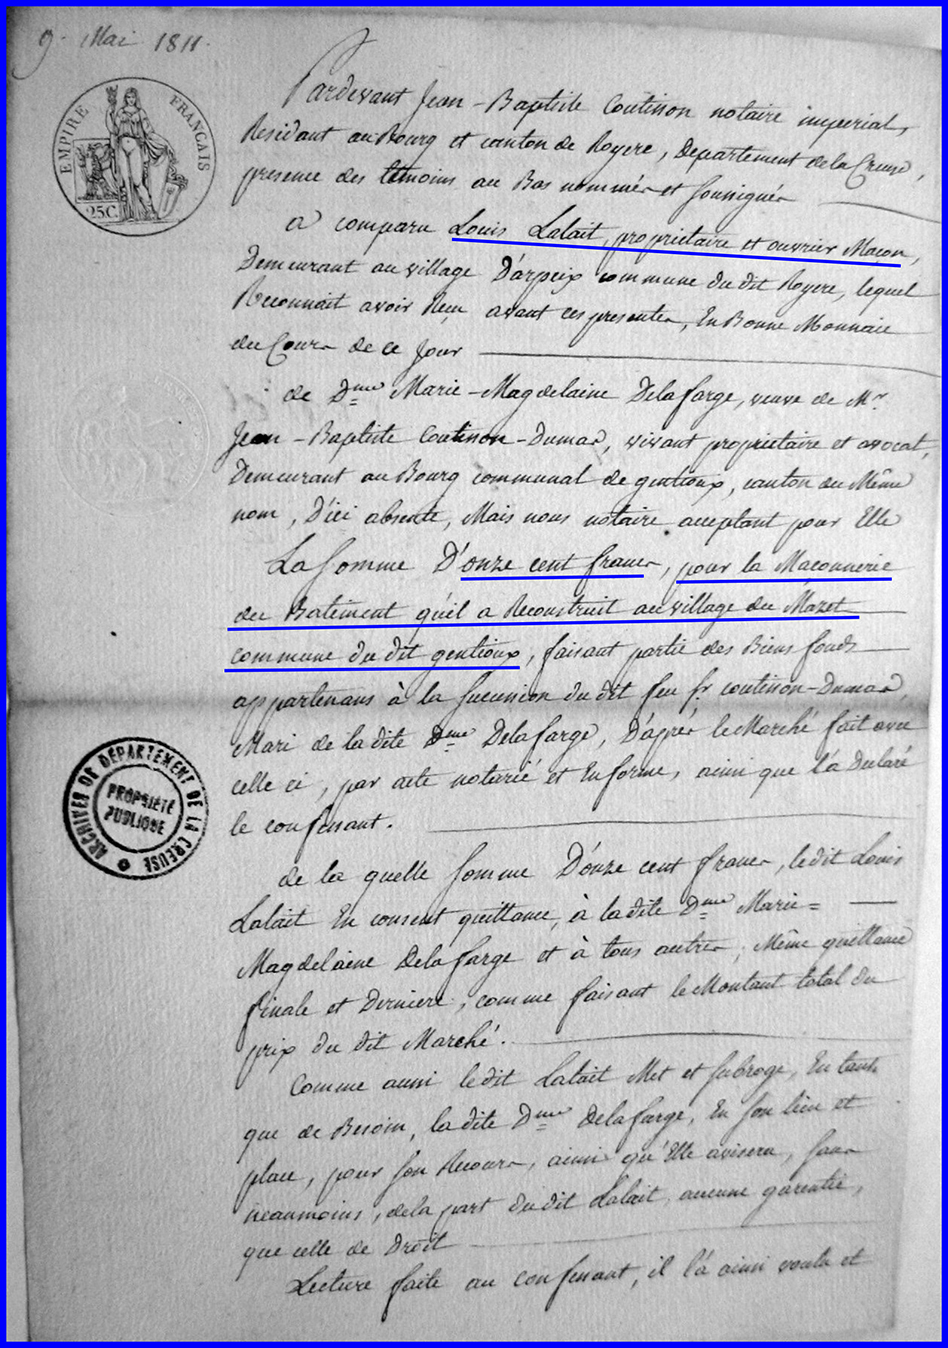 9. Mai 1811.
EMPIRE FRANÇAIS
25C.
Pardevant Jean-Baptiste Coutisson notaire imperial,
Résidant au Bourg et canton de Royere, Departement de la Creuse,
presence des témoins au Bas nommés et soussignés
a comparu Louis Lalait, propriétaire et ouvrier Maçon,
Demeurant au village D'arpeix commune du dit Royere, lequel
Reconnait avoir Reçu avant ces presentes, En Bonne Monnaie
du Cours de ce Jour
de Dme Marie-Magdelaine Delafarge, veuve de Mr
Jean-Baptiste Coutisson-Dumas, vivant propriétaire et avocat,
Demeurant au Bourg communal de gentioux, canton du Même
nom, D'ici absente, Mais nous notaire acceptant pour Elle
La Somme D'onze cent francs, pour la Maçonnerie
du Batiment qu'il a Reconstruit au village du Mazet
commune du dit gentioux, faisant partie des Biens fonds
appartenans à la succession du dit feu sr coutisson-Dumas,
Mari de la dite Dme Delafarge, D'après le Marché fait avec
celle ci, par acte notarié et En forme, ainsi que l'a Declaré
le confessant.
ARCHIVES DE DÉPARTEMENT DE LA CREUSE
PROPRIÉTÉ
PUBLIQUE
de la quelle somme D'onze cent francs, le dit Louis
Lalait En consent quittance, à la dite Dme Marie=
Magdelaine Delafarge et à tous autres, Même quittance
finale et Derniere, comme faisant le Montant total du
prix du dit Marché.
Comme aussi le dit Lalait Met et subroge, En tant
que de Besoin, la dite Dme Delafarge, En son lieu et
place, pour son Recours, ainsi qu'Elle avisera, sans
neanmoins, de la part du dit Lalait, aucune garentie,
que celle de Droit
Lecture faite au confessant, il l'a ainsi voulu et